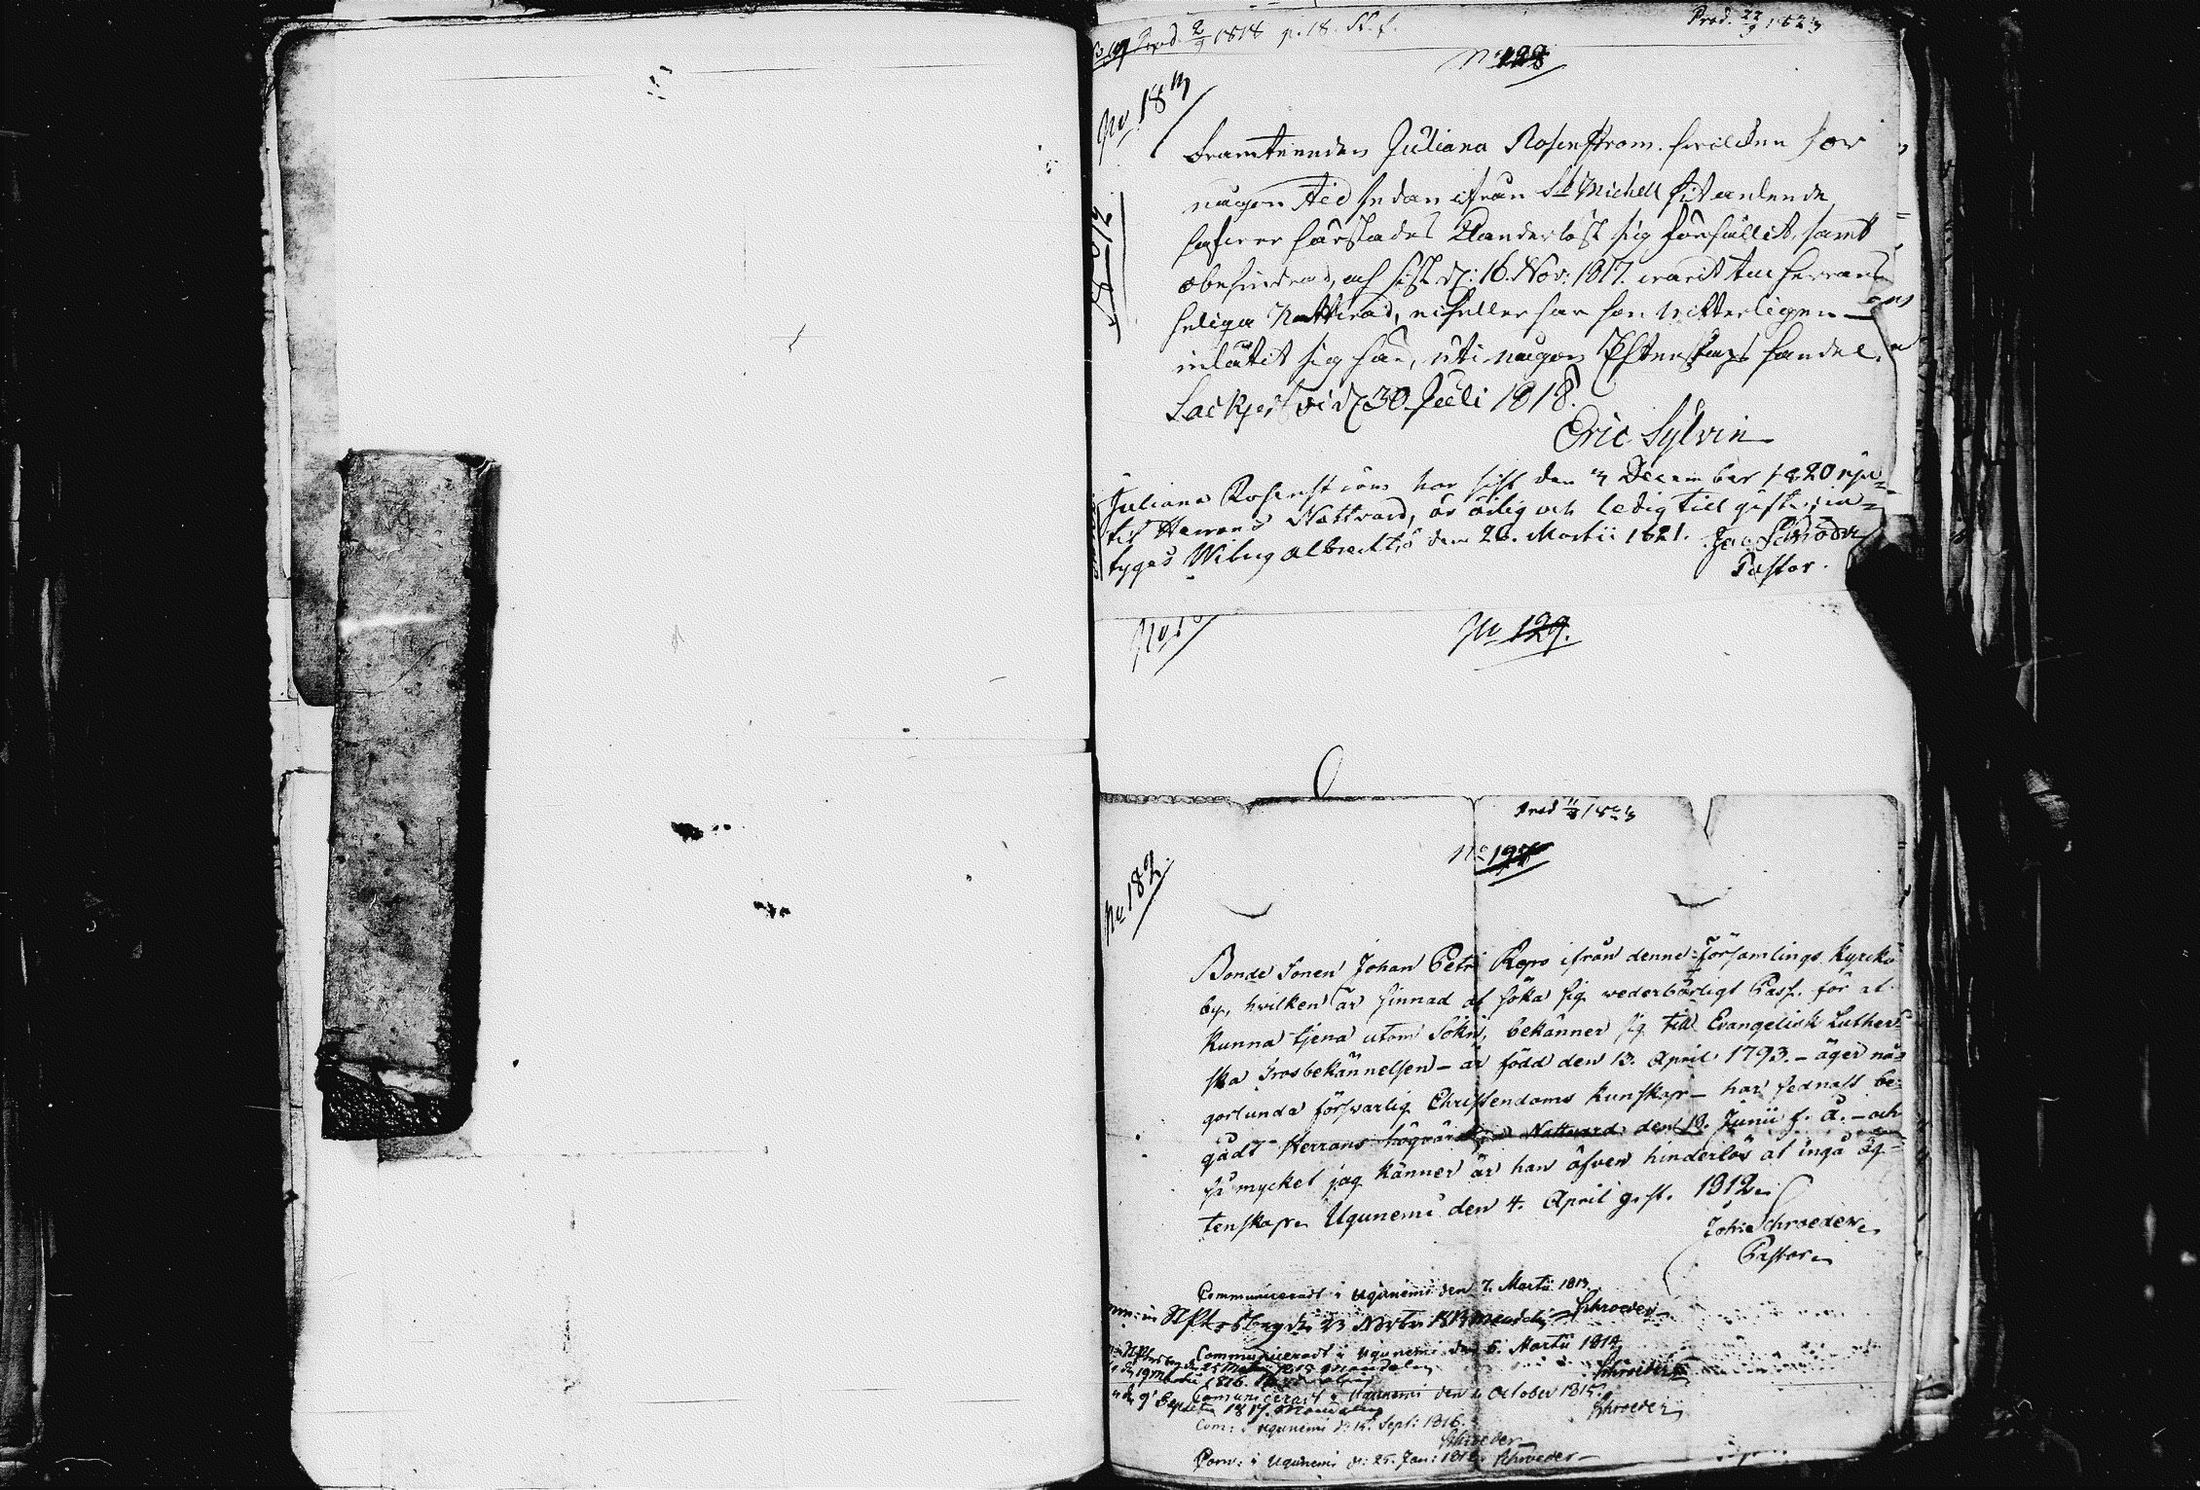 Prod. 2/9 1818 p. 18.
Prod. 22/9 1823
No 128
No 183
Juliana Rosenström hvilken för
någon tid sedan ifrån St Michell hit anlände
härstädes Klanderlöst sig förhållit, samt
obehindrad, och sist d: 16. Nov: 1817. varit
heliga Nattvard, ej heller har hon vitterligen
inlåtit sig här, uti någon Ektenskaps handel.
d 30 Juli 1818.
Eric Sylvin
Juliana Rosenström har sist den 3 December 1820 nju-
tit Herrans Nattvard, är ärlig och ledig till gifte; in-
tygas Wiburg den 26. Martii 1821.
Pastor.
No 129.
Prod 11/8 1823
No 182
Bonde Sonen Johan Petri Repo ifrån denne Församlings Kyrcko
by, hvilken är sinnad at söka sig vederbörligt Pass. för at
kunna tjena utom Sökn, bekänner sig till Evangelisk Luther-
ska Trosbekännelsen – är född den 13. April 1793. – äger nå-
gorlunda försvarlig Christendoms kunskap – har sednast be-
gådt Herrans högvärdiga Nattvard den 18. Junii f. å. – och
så mycket jag känner är han äfven hinderlös at ingå äg-
tenskap. Ugunemi den 4. April g. st. 1812.
Joh: Schroeder.
Pastor.
Communiceradt i Ugunemi den 7. Martii 1813
Schroeder
Communiceradt i Ugunemi den 6. Martii 1814
Schroeder
1816.
Comuniceradt i Ugunemi den October 1815.
Schroeder
1817.
Com: i Ugunemi d: 15. Sept: 1816.
Schroeder
Com: i Ugunemi d: 25. Jan: 1818. Schroeder